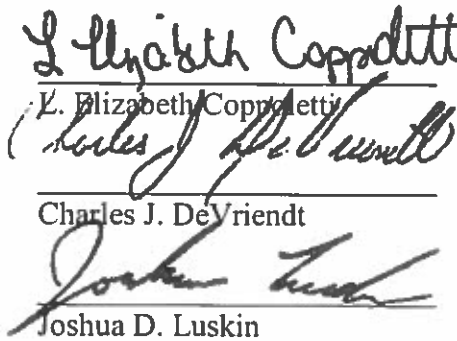 L Elizabeth Coppoletti
L. Elizabeth Coppoletti
Charles J. DeVriendt
Charles J. DeVriendt
Joshua Luskin
Joshua D. Luskin